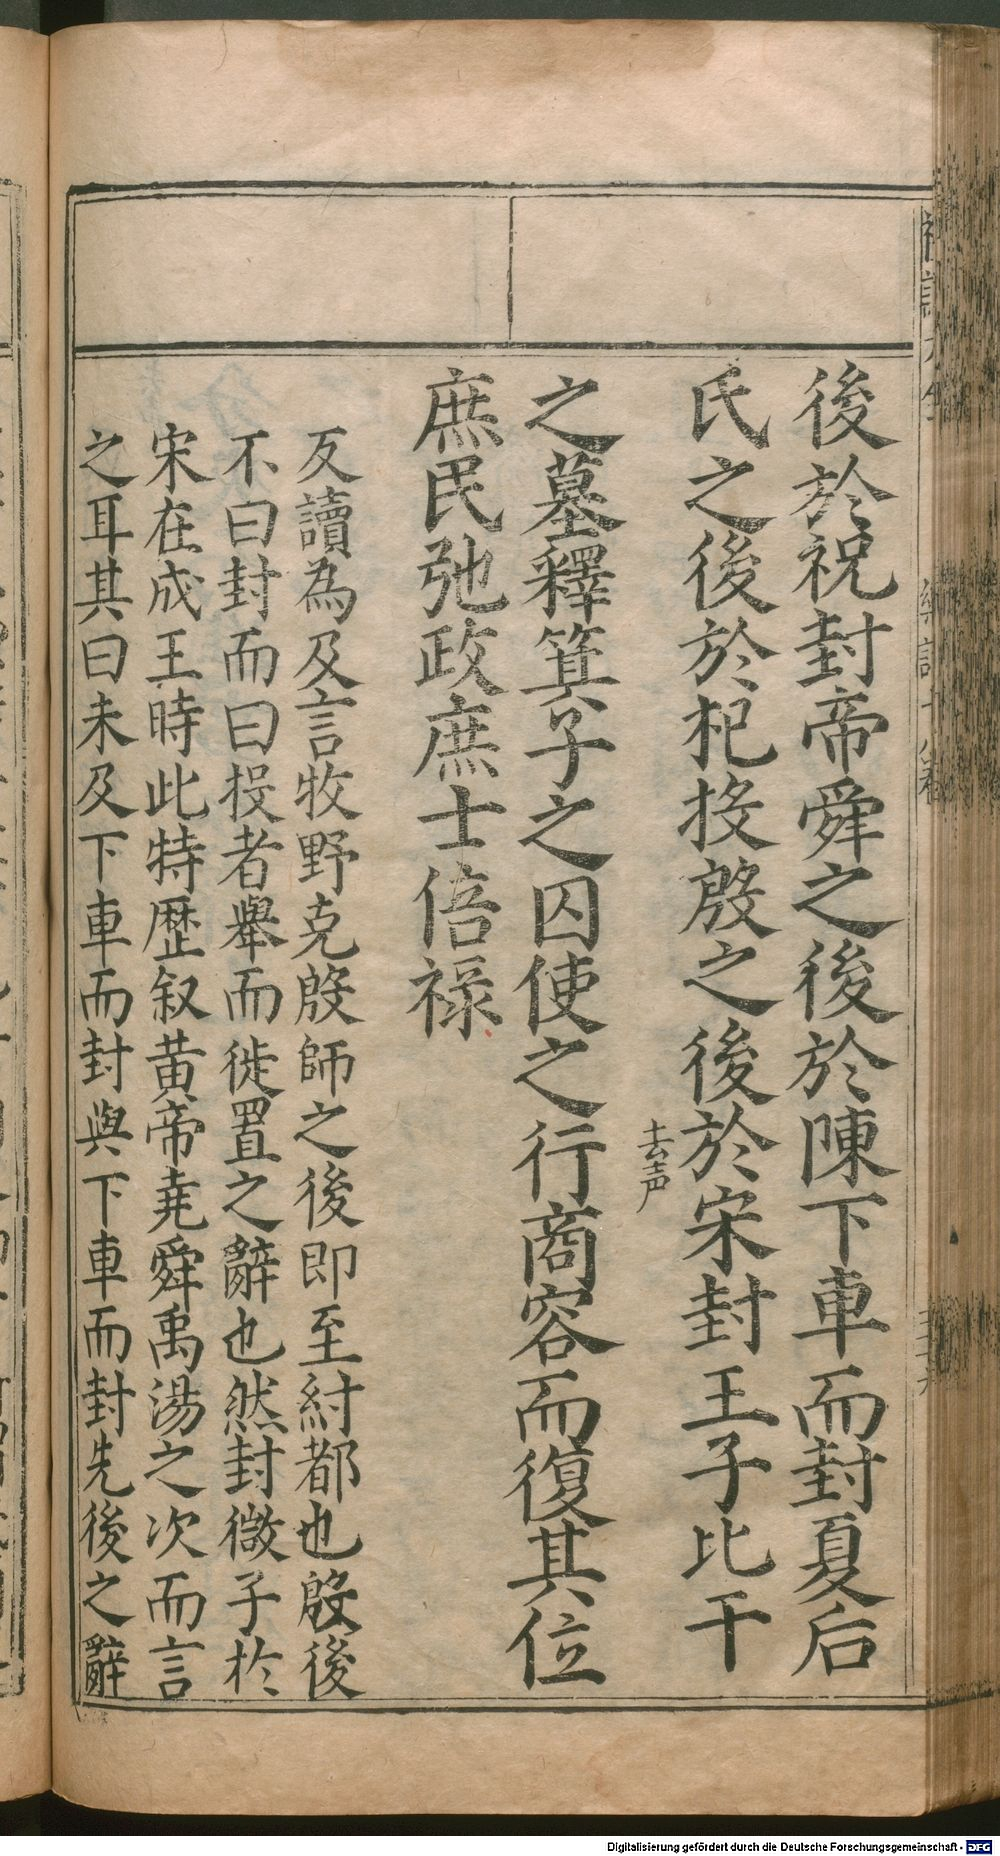 後於祝封帝舜之後於陳下車而封夏后
氏之後於杞投殷之後於宋封王子比干
去声
之墓釋箕子之囚使之行商容而復其位
庶民弛政庶士倍祿
反讀為及言牧野克殷師之後即至紂都也殷後
不曰封而曰投者舉而徙置之辭也然封微子於
宋在成王時此特歷叙黃帝堯舜禹湯之次而言
之耳其曰未及下車而封與下車而封先後之辭
Digitalisierung gefördert durch die Deutsche Forschungsgemeinschaft - DFG